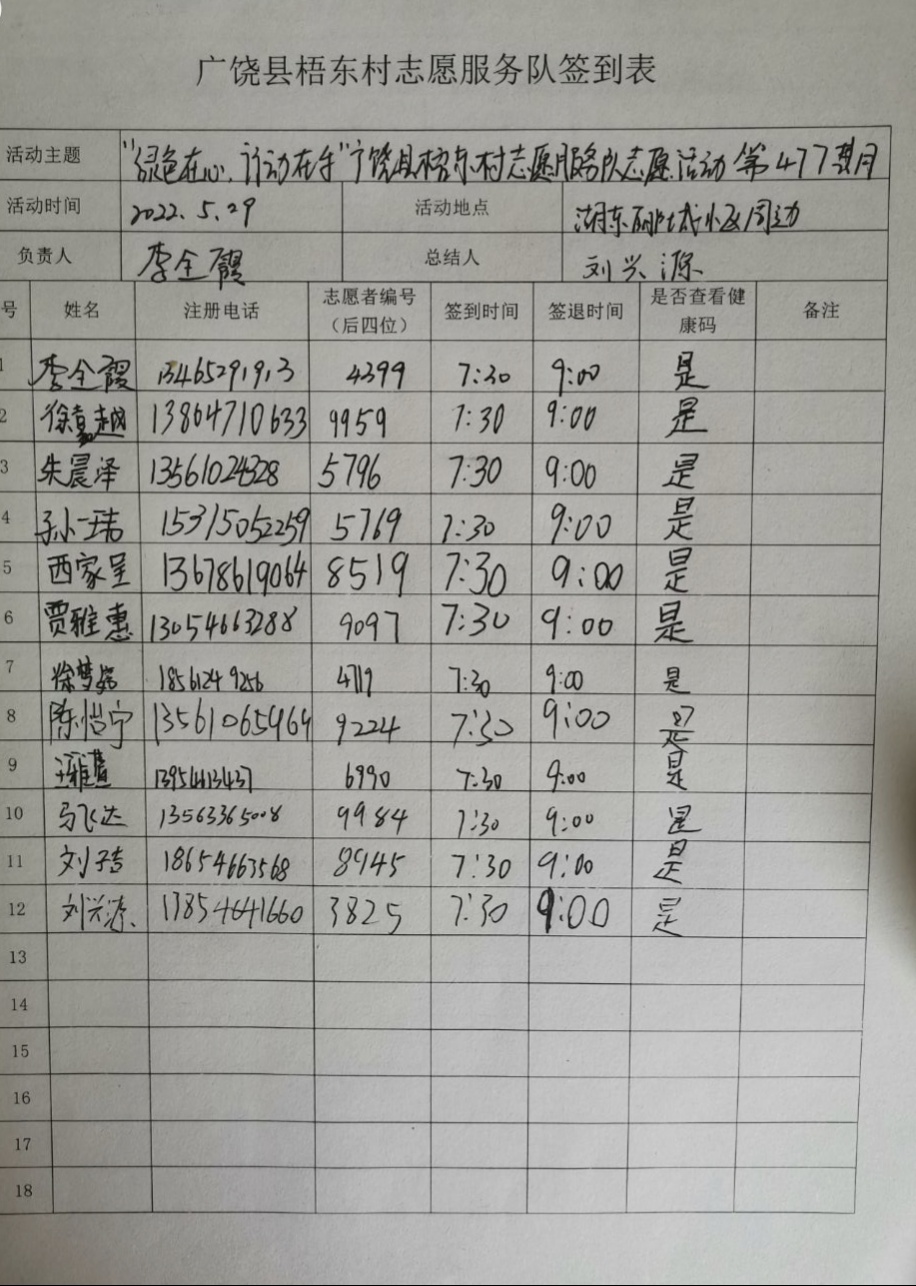 广饶县梧东村志愿服务队签到表
活动主题 "绿色在心,行动在手"广饶县梧东村志愿服务队志愿活动第477期
活动时间 2022.5.29 活动地点 湖东 小区周边
负责人 李全霞 总结人 刘兴源
号 姓名 注册电话 志愿者编号(后四位) 签到时间 签退时间 是否查看健康码 备注
1 李全霞 13465291913 4399 7:30 9:00 是
2 徐嘉越 13864710633 9959 7:30 9:00 是
3 朱晨泽 13561024328 5796 7:30 9:00 是
4 15315052259 5769 7:30 9:00 是
5 西家呈 13678619064 8519 7:30 9:00 是
6 贾雅惠 13054663288 9097 7:30 9:00 是
7 徐梦 4719 7:30 9:00 是
8 陈怡宁 13561065464 9224 7:30 9:00 是
9 6990 7:30 9:00 是
10 马飞达 13563365008 9984 7:30 9:00 是
11 刘子吉 18654663568 8945 7:30 9:00 是
12 刘兴源 13854641660 3825 7:30 9:00 是
13
14
15
16
17
18